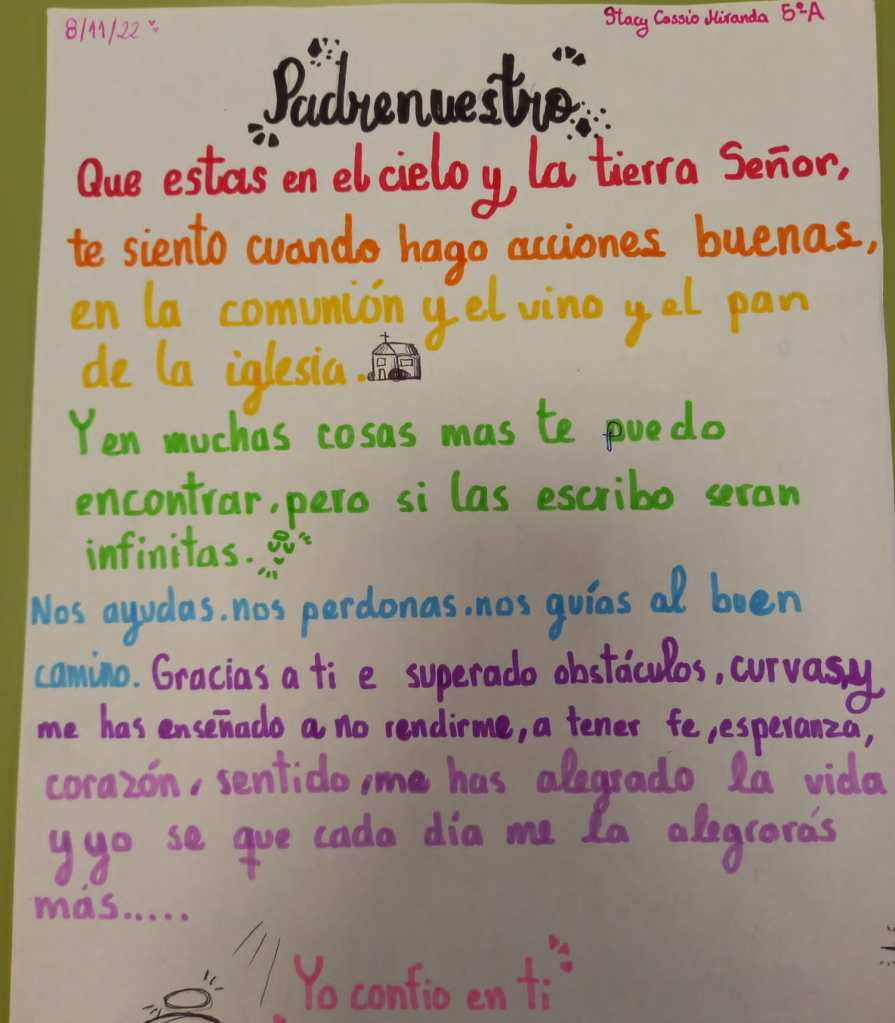 8/11/22
Stacy Cossio Miranda 5º-A
Padrenuestro
Que estas en el cielo y la tierra Señor,
te siento cuando hago acciones buenas,
en la comunión y el vino y el pan
de la iglesia.
Y en muchas cosas mas te puedo
encontrar, pero si las escribo seran
infinitas.
Nos ayudas, nos perdonas, nos guías al buen
camino. Gracias a ti e superado obstáculos, curvas, y
me has enseñado a no rendirme, a tener fe, esperanza,
corazón, sentido, me has alegrado la vida
y yo se que cada día me la alegrarás
más.....
Yo confio en ti